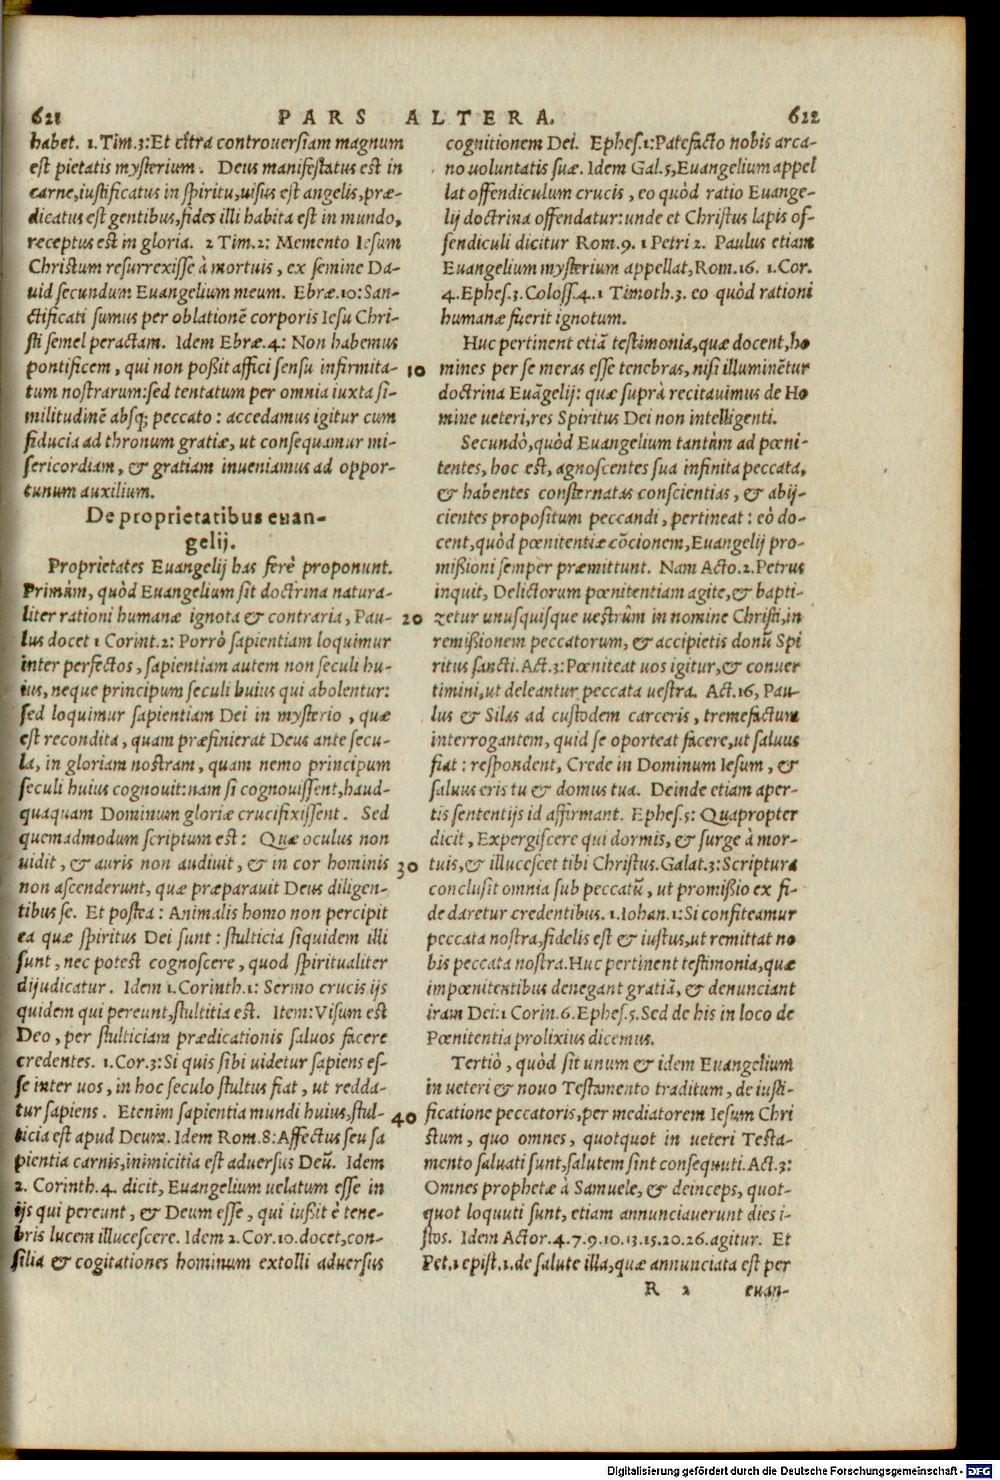 621 PARS ALTERA. 622
habet. 1. Tim. 3: Et citra controuersiam magnum
est pietatis mysterium. Deus manifestatus est in
carne, iustificatus in spiritu, uisus est angelis, præ-
dicatus est gentibus, fides illi habita est in mundo,
receptus est in gloria. 2 Tim. 2: Memento Iesum
Christum resurrexisse à mortuis, ex semine Da-
uid secundum Euangelium meum. Ebræ. 10: San-
ctificati sumus per oblationē corporis Iesu Chri-
sti semel peractam. Idem Ebræ. 4: Non habemus
pontificem, qui non poßit affici sensu infirmita-
tum nostrarum: sed tentatum per omnia iuxta si-
militudinē absq; peccato: accedamus igitur cum
fiducia ad thronum gratiæ, ut consequamur mi-
sericordiam, & gratiam inueniamus ad oppor-
tunum auxilium.
De proprietatibus euan-
gelij.
Proprietates Euangelij has ferè proponunt.
Primùm, quòd Euangelium sit doctrina natura-
liter rationi humanæ ignota & contraria, Pau-
lus docet 1 Corint. 2: Porrò sapientiam loquimur
inter perfectos, sapientiam autem non seculi hu-
ius, neque principum seculi huius qui abolentur:
sed loquimur sapientiam Dei in mysterio, quæ
est recondita, quam præfinierat Deus ante secu-
la, in gloriam nostram, quam nemo principum
seculi huius cognouit: nam si cognouissent, haud-
quaquam Dominum gloriæ crucifixissent. Sed
quemadmodum scriptum est: Quæ oculus non
uidit, & auris non audiuit, & in cor hominis
non ascenderunt, quæ præparauit Deus diligen-
tibus se. Et postea: Animalis homo non percipit
ea quæ spiritus Dei sunt: stulticia siquidem illi
sunt, nec potest cognoscere, quod spiritualiter
dijudicatur. Idem 1. Corinth. 1: Sermo crucis ijs
quidem qui pereunt, stultitia est. Item: Visum est
Deo, per stulticiam prædicationis saluos facere
credentes. 1. Cor. 3: Si quis sibi uidetur sapiens es-
se inter uos, in hoc seculo stultus fiat, ut redda-
tur sapiens. Etenim sapientia mundi huius, stul-
ticia est apud Deum. Idem Rom. 8: Affectus seu sa
pientia carnis, inimicitia est aduersus Deū. Idem
2. Corinth. 4. dicit, Euangelium uelatum esse in
ijs qui pereunt, & Deum esse, qui iußit è tene-
bris lucem illucescere. Idem 2. Cor. 10. docet, con-
silia & cogitationes hominum extolli aduersus
10
20
30
40
cognitionem Dei. Ephes. 1: Patefacto nobis arca-
no uoluntatis suæ. Idem Gal. 5, Euangelium appel
lat offendiculum crucis, eo quòd ratio Euange-
lij doctrina offendatur: unde et Christus lapis of-
fendiculi dicitur Rom. 9. 1 Petri 2. Paulus etiam
Euangelium mysterium appellat, Rom. 16. 1. Cor.
4. Ephes. 3. Coloss. 4. 1 Timoth. 3. eo quòd rationi
humanæ fuerit ignotum.
Huc pertinent etiā testimonia, quæ docent, ho
mines per se meras esse tenebras, nisi illuminētur
doctrina Euāgelij: quæ suprà recitauimus de Ho
mine ueteri, res Spiritus Dei non intelligenti.
Secundò, quòd Euangelium tantùm ad pœni-
tentes, hoc est, agnoscentes sua infinita peccata,
& habentes consternatas conscientias, & abij-
cientes propositum peccandi, pertineat: eò do-
cent, quòd pœnitentiæ cōcionem, Euangelij pro-
mißioni semper præmittunt. Nam Acto. 2. Petrus
inquit, Delictorum pœnitentiam agite, & bapti-
zetur unusquisque uestrûm in nomine Christi, in
remißionem peccatorum, & accipietis donū Spi
ritus sancti. Act. 3: Pœniteat uos igitur, & conuer
timini, ut deleantur peccata uestra. Act. 16, Pau-
lus & Silas ad custodem carceris, tremefactum
interrogantem, quid se oporteat facere, ut saluus
fiat: respondent, Crede in Dominum Iesum, &
saluus eris tu & domus tua. Deinde etiam aper-
tis sententijs id affirmant. Ephes. 5: Quapropter
dicit, Expergiscere qui dormis, & surge à mor-
tuis, & illucescet tibi Christus. Galat. 3: Scriptura
conclusit omnia sub peccatū, ut promißio ex fi-
de daretur credentibus. 1. Iohan. 1: Si confiteamur
peccata nostra, fidelis est & iustus, ut remittat no
bis peccata nostra. Huc pertinent testimonia, quæ
impœnitentibus denegant gratiā, & denunciant
iram Dei: 1 Corin. 6. Ephes. 5. Sed de his in loco de
Pœnitentia prolixius dicemus.
Tertiò, quòd sit unum & idem Euangelium
in ueteri & nouo Testamento traditum, de iusti-
ficatione peccatoris, per mediatorem Iesum Chri
stum, quo omnes, quotquot in ueteri Testa-
mento saluati sunt, salutem sint consequuti. Act. 3:
Omnes prophetæ à Samuele, & deinceps, quot-
quot loquuti sunt, etiam annunciauerunt dies i-
stos. Idem Actor. 4. 7. 9. 10. 13. 15. 20. 26. agitur. Et
Pet. 1 epist. 1. de salute illa, quæ annunciata est per
R 2 euan-
Digitalisierung gefördert durch die Deutsche Forschungsgemeinschaft - DFG